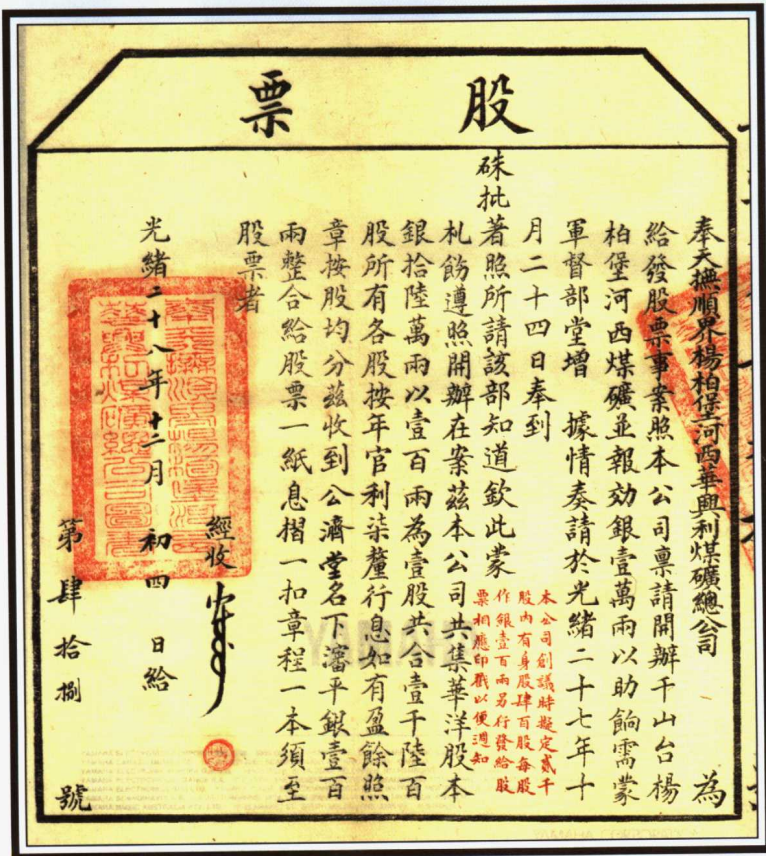 股票
奉天撫順界楊柏堡河西華興利煤礦總公司 為
給發股票事案照本公司禀請開辦千山台楊
柏堡河西煤礦並報効銀壹萬兩以助餉需蒙
軍督部堂增 據情奏請於光緒二十七年十
月二十四日奉到
硃批著照所請該部知道欽此蒙
札飭遵照開辦在案茲本公司共集華洋股本
銀拾陸萬兩以壹百兩為壹股共合壹千陸百
股所有各股按年官利柒釐行息如有盈餘照
章按股均分茲收到公濟堂名下瀋平銀壹百
兩整合給股票一紙息摺一扣章程一本須至
股票者
本公司創議時擬定貳千
股內有身股肆百股每股
作銀壹百兩另行發給股
票相應印戳以便週知
經收
光緒二十八年十二月 初四 日給
第肆拾捌號